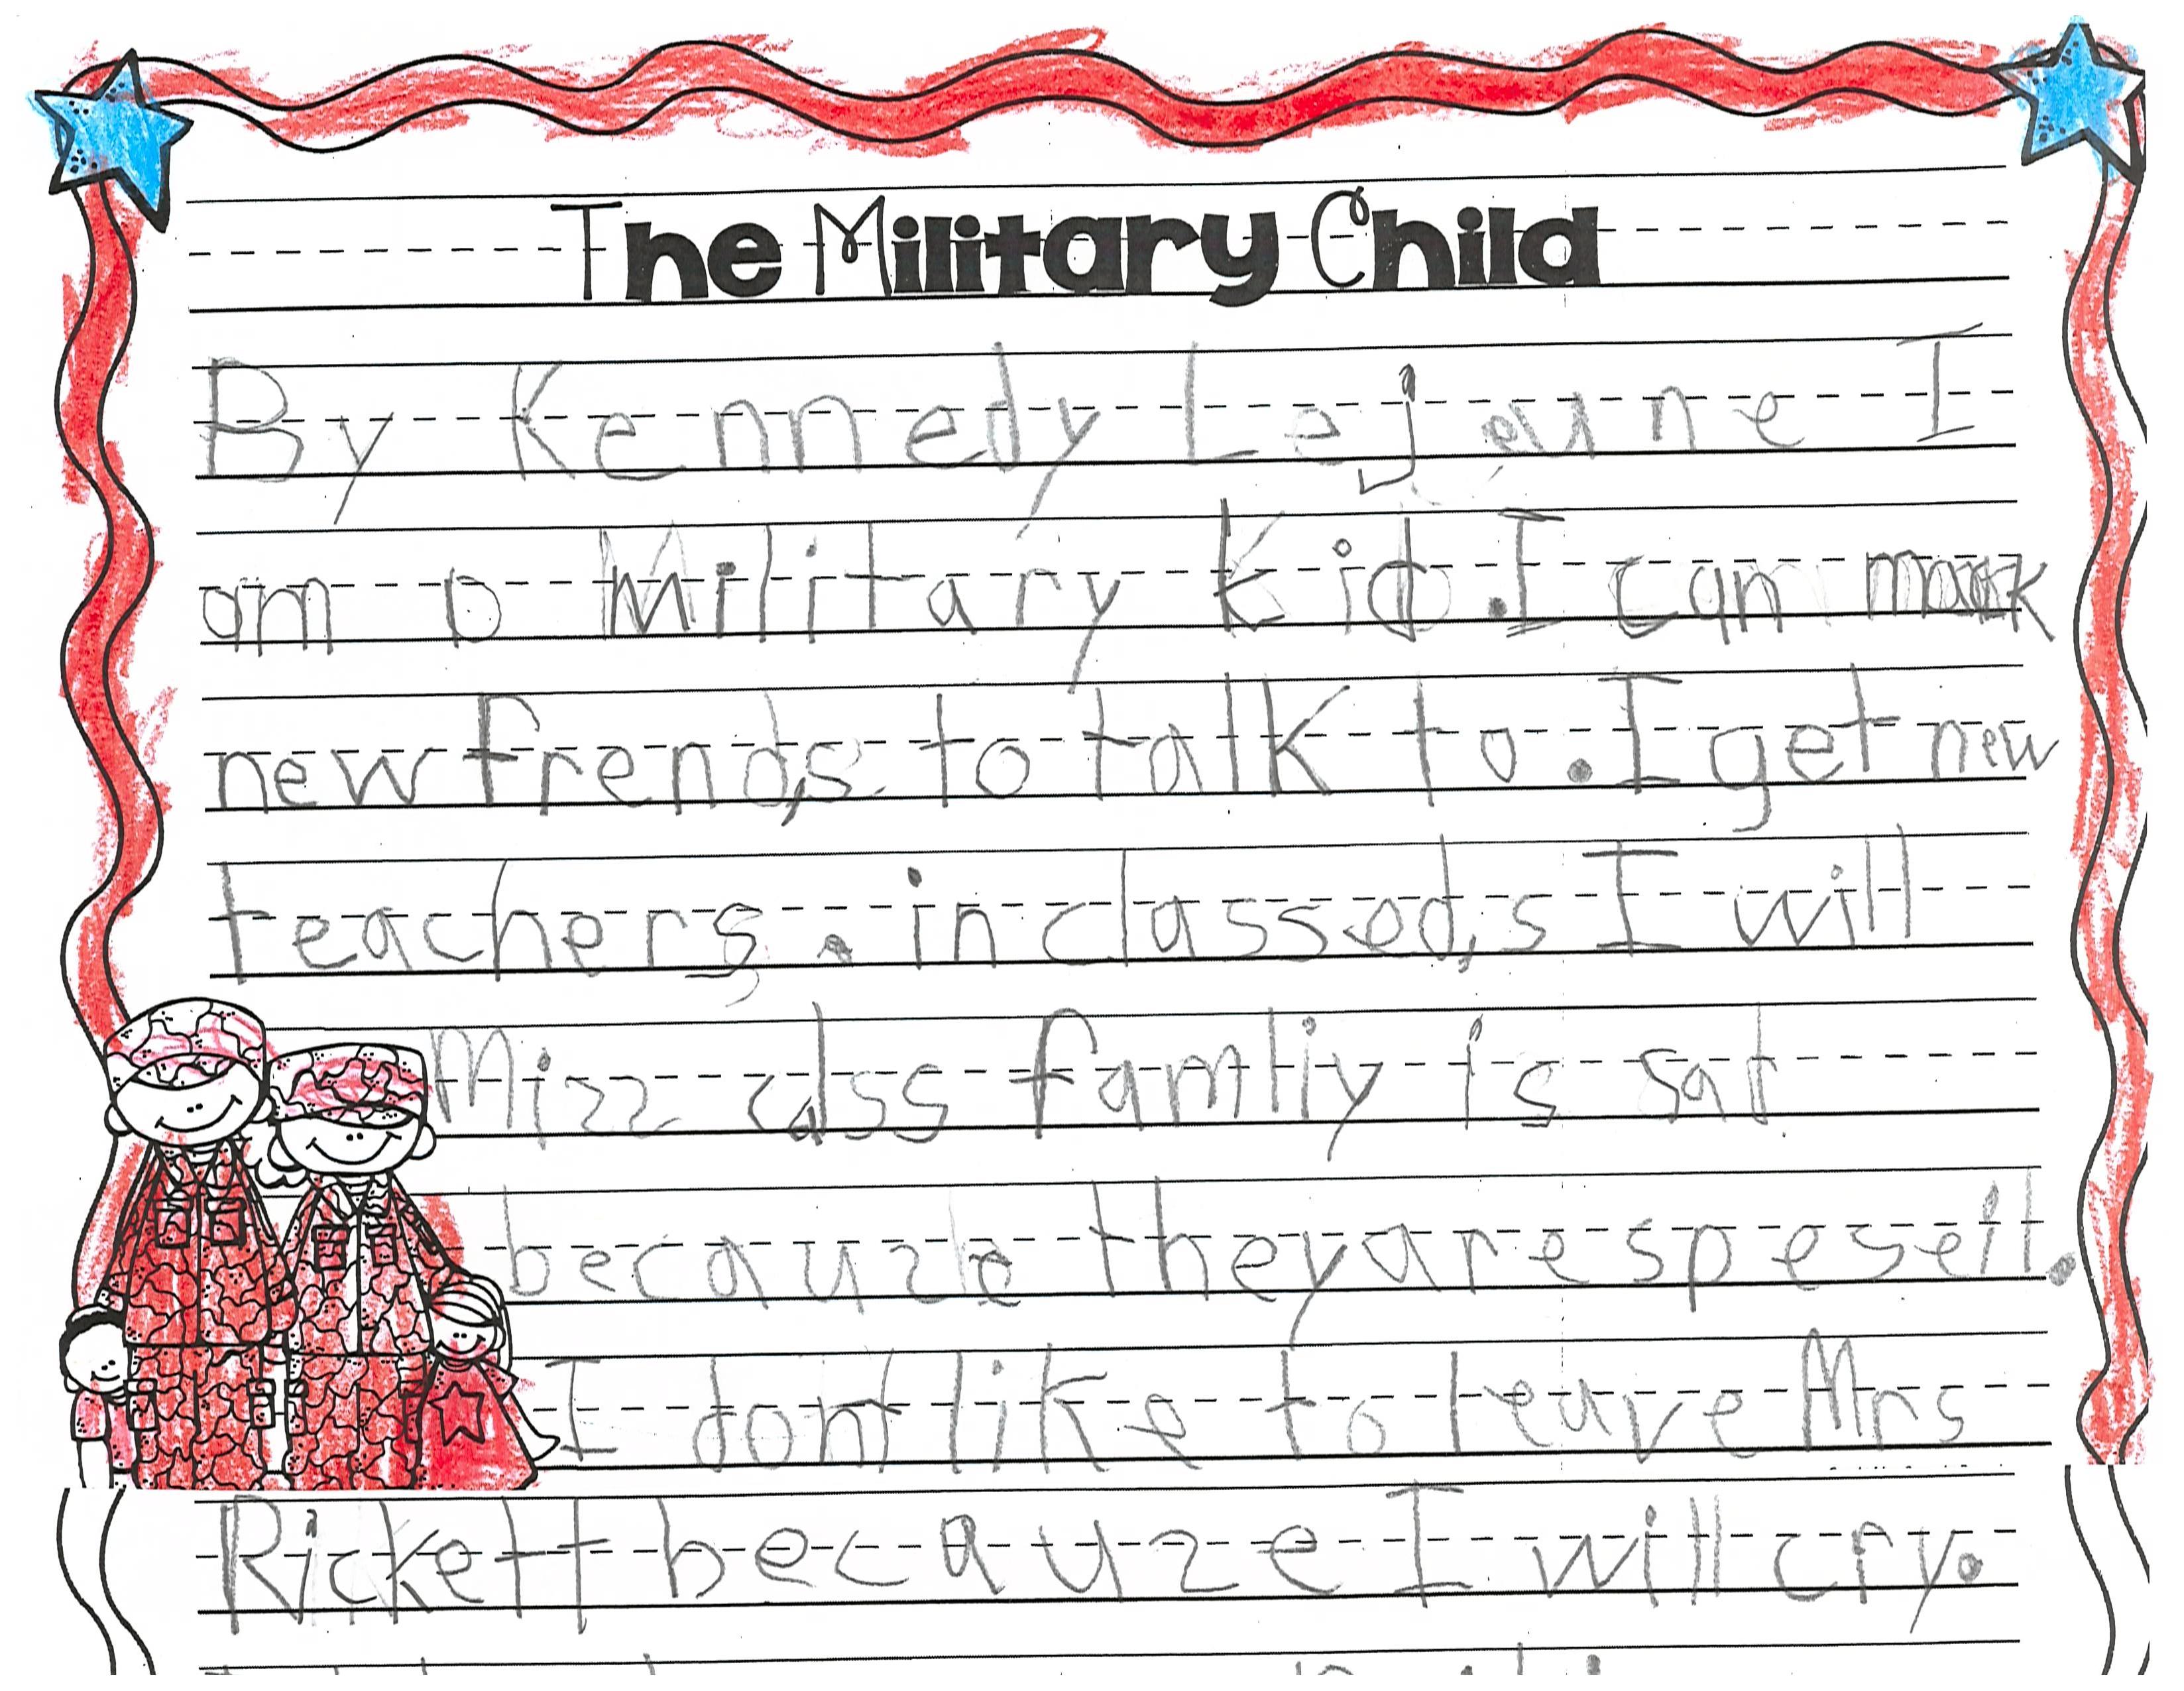 The Military Child
By Kennedy Lejeune I
am a Military kid. I can mak
new frends to talk to. I get new
teachers. in classeds I will
Mizz class famliy is sat
becauze they are speseil.
I dont like to leave Mrs
Rickett becauze I will cry.